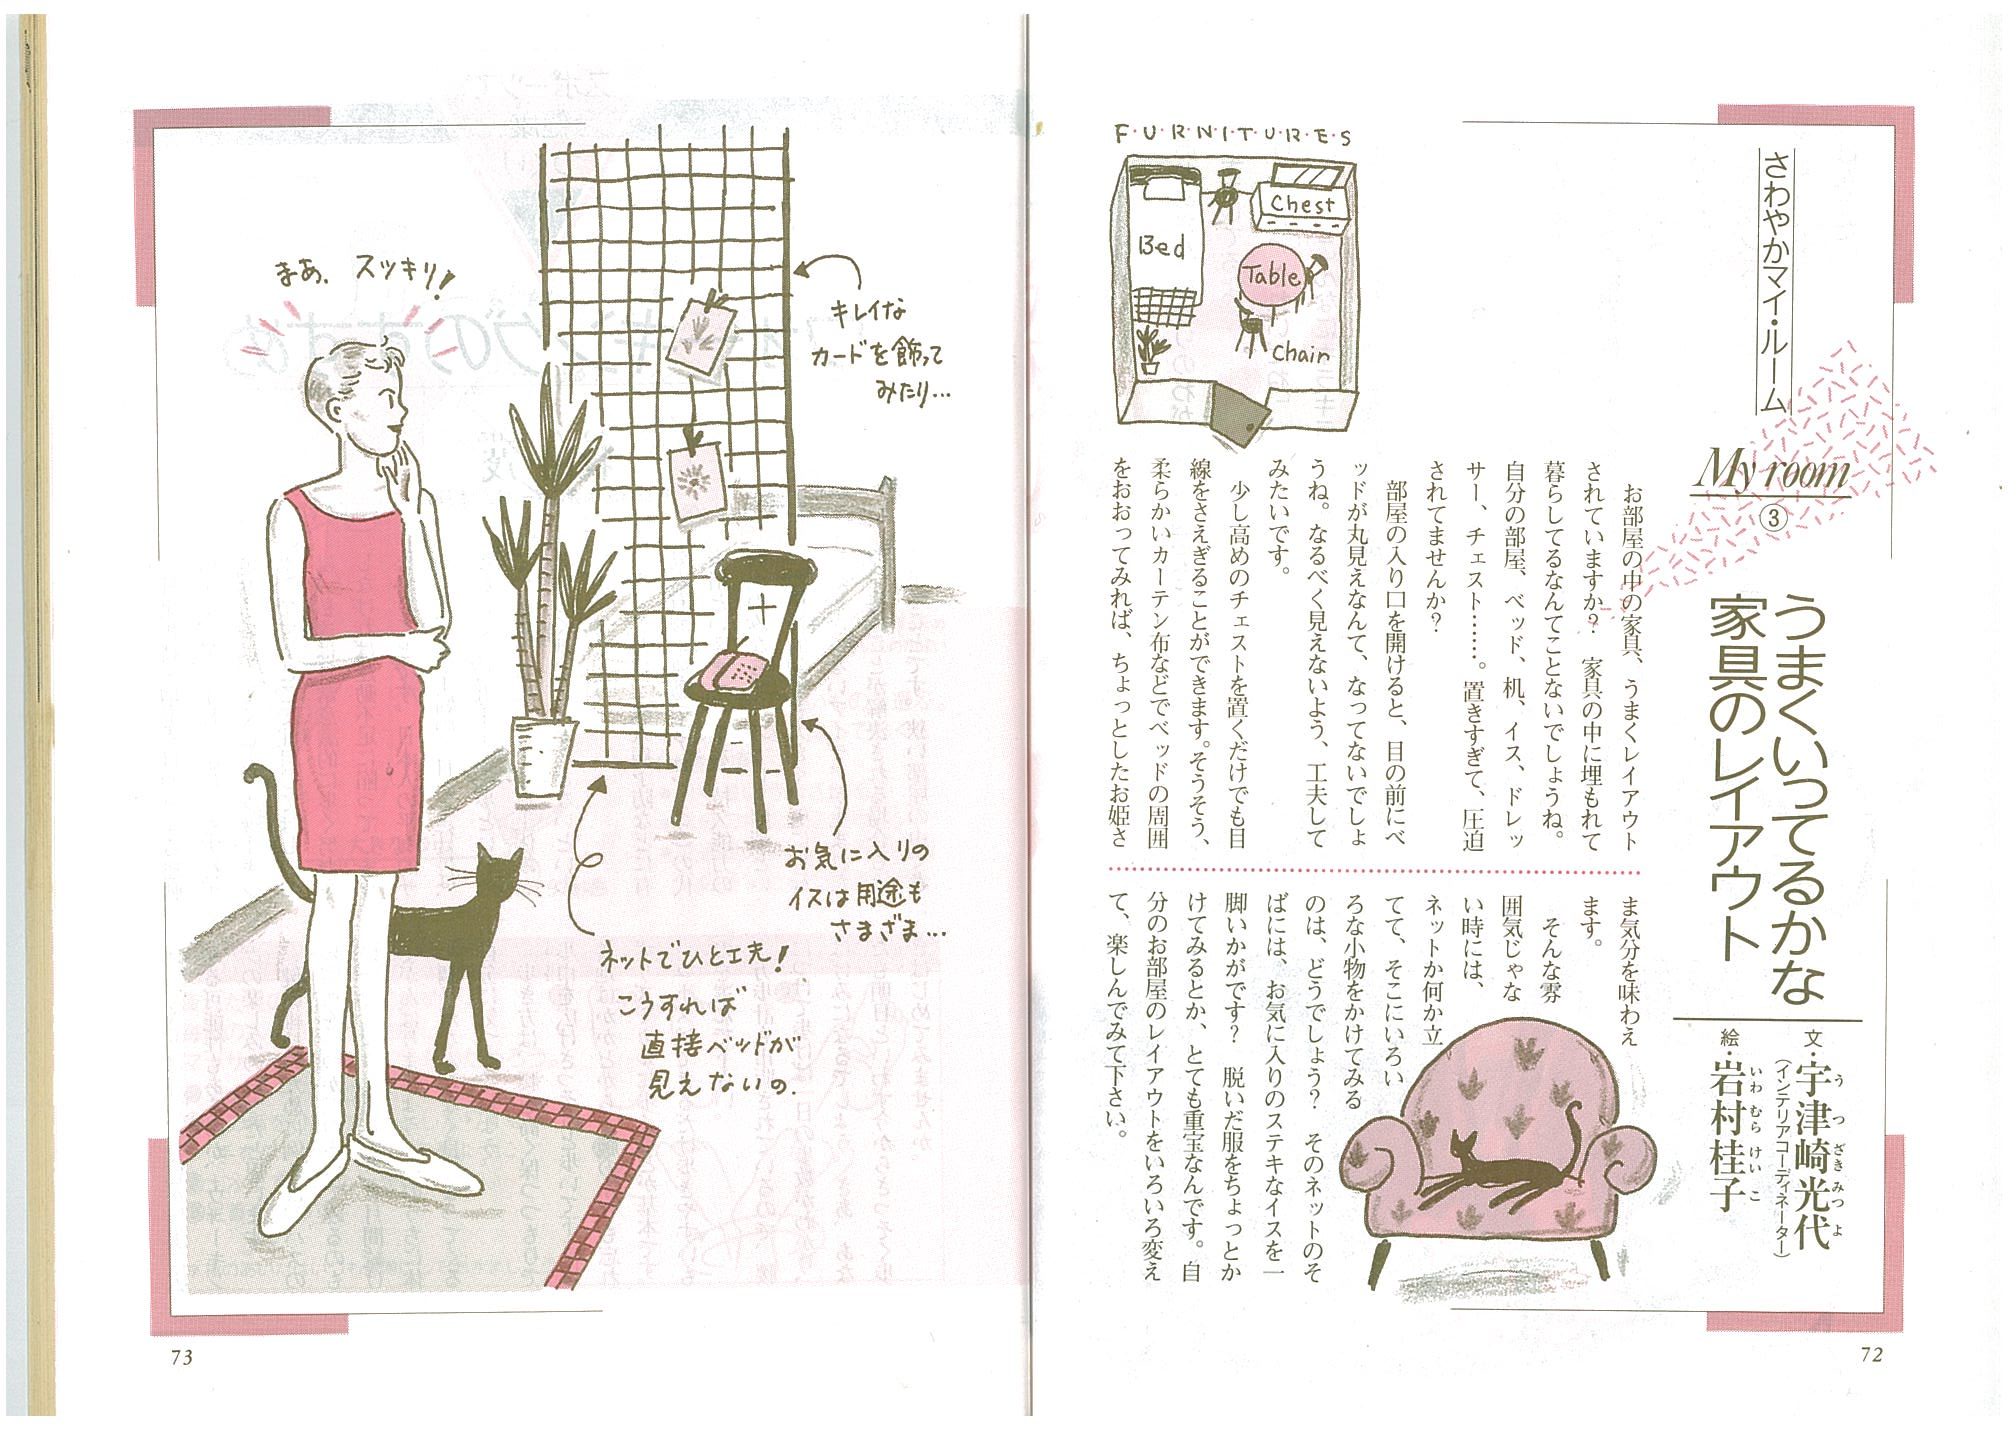 さわやかマイ・ルーム
My room
③
うまくいってるかな
家具のレイアウト
文・宇津崎光代
うつざきみつよ
(インテリアコーディネーター)
絵・岩村桂子
いわむらけいこ
F・U・R・N・I・T・U・R・E・S
Chest
Bed
Table
Chair
お部屋の中の家具、うまくレイアウト
されていますか? 家具の中に埋もれて
暮らしてるなんてことないでしょうね。
自分の部屋、ベッド、机、イス、ドレッ
サー、チェスト……。置きすぎて、圧迫
されてませんか?
部屋の入り口を開けると、目の前にベ
ッドが丸見えなんて、なってないでしょ
うね。なるべく見えないよう、工夫して
みたいです。
少し高めのチェストを置くだけでも目
線をさえぎることができます。そうそう、
柔らかいカーテン布などでベッドの周囲
をおおってみれば、ちょっとしたお姫さ
ま気分を味わえ
ます。
そんな雰
囲気じゃな
い時には、
ネットか何か立
てて、そこにいろい
ろな小物をかけてみる
のは、どうでしょう? そのネットのそ
ばには、お気に入りのステキなイスを一
脚いかがです? 脱いだ服をちょっとか
けてみるとか、とても重宝なんです。自
分のお部屋のレイアウトをいろいろ変え
て、楽しんでみて下さい。
72
まあ、スッキリ!
キレイな
カードを飾って
みたり…
お気に入りの
イスは用途も
さまざま…
ネットでひと工夫!
こうすれば
直接ベッドが
見えないの.
73